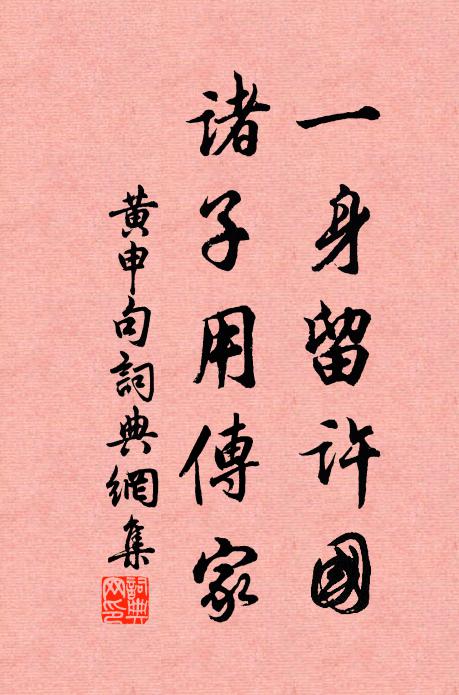 一身留許國
諸子用傳家
黄申句詞典網集
詞典網印